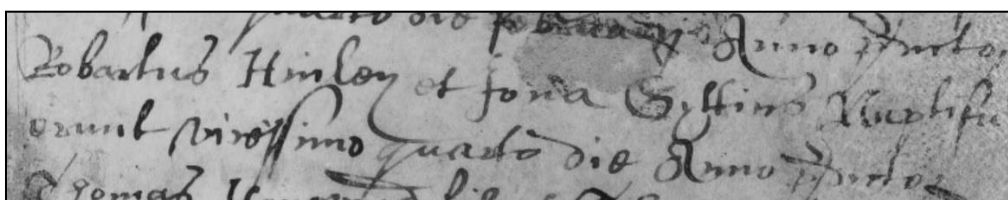 quarto die februarij Anno
Robartus Hinley et Jona Gyttins Nupti fu
erunt vicessimo quarto die Anno
Thomas